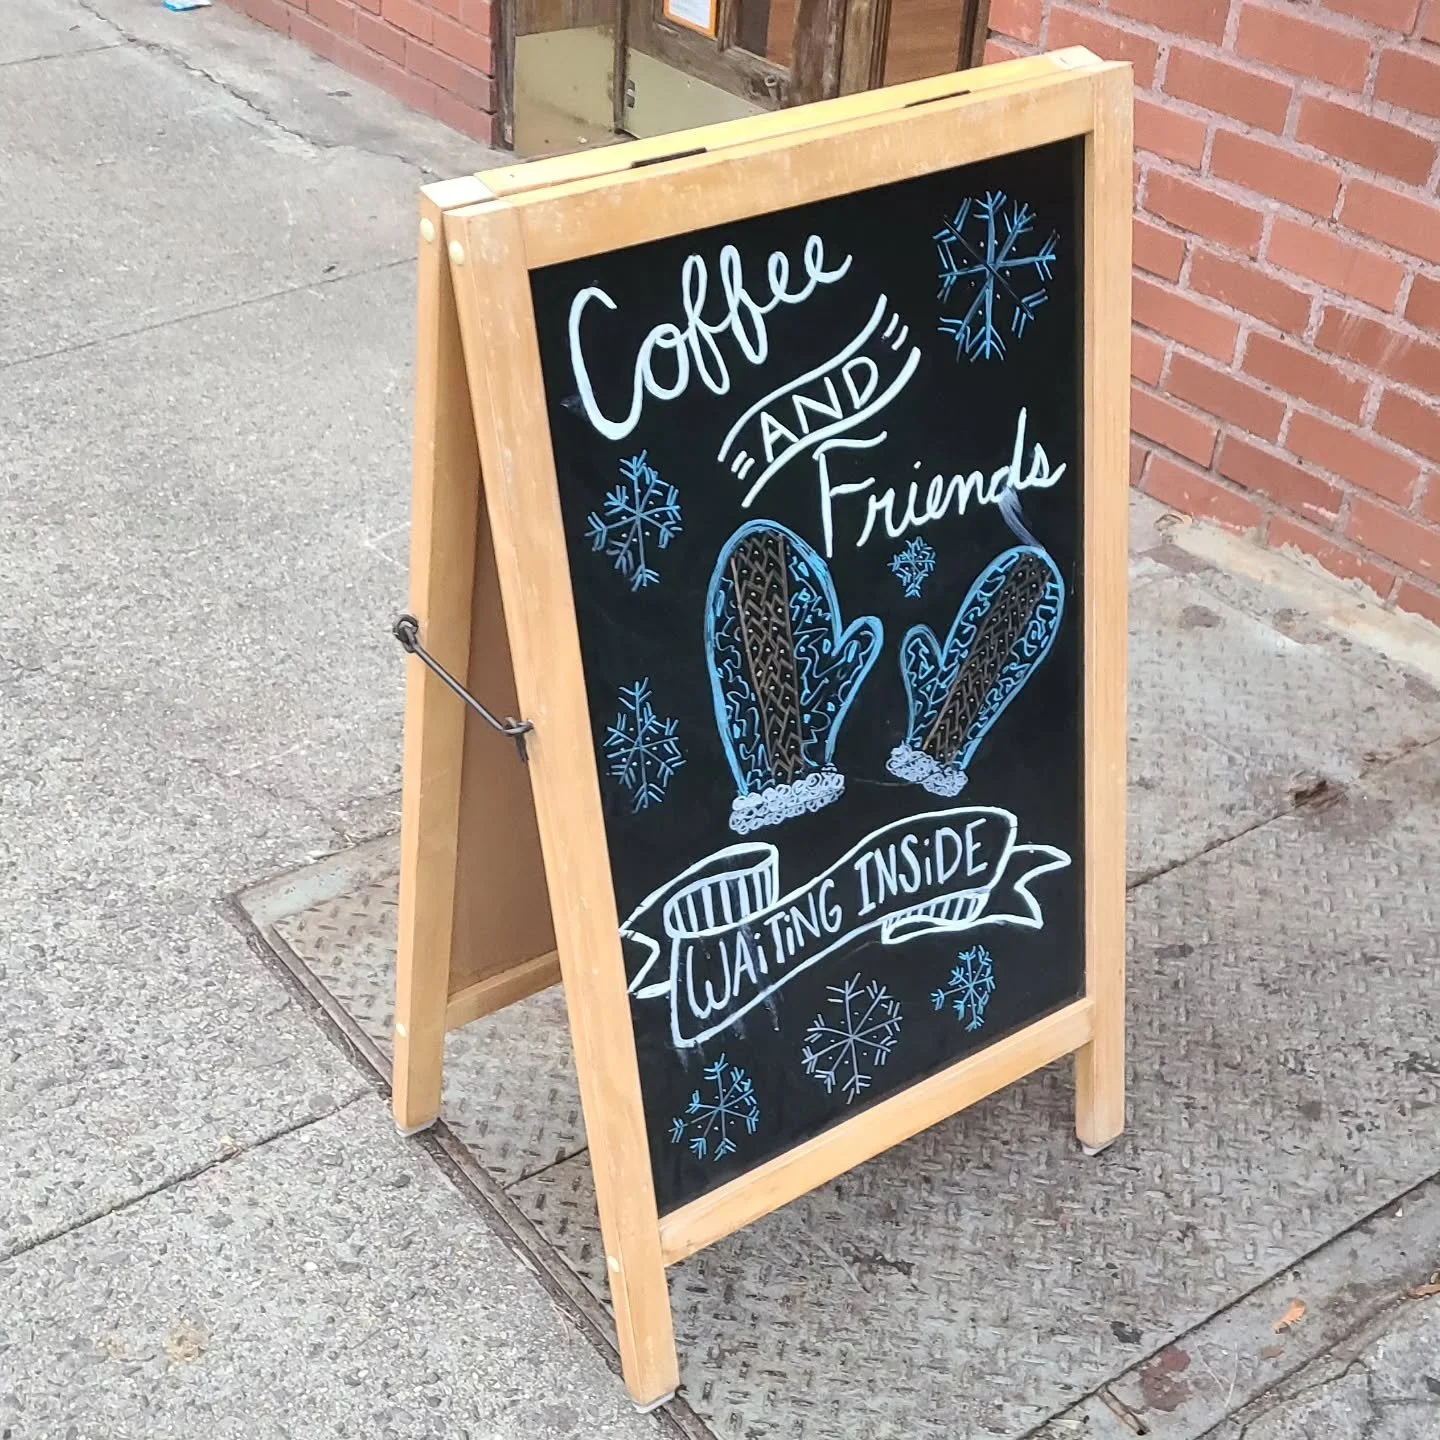 Coffee
AND
Friends
WAiTiNG INSiDE